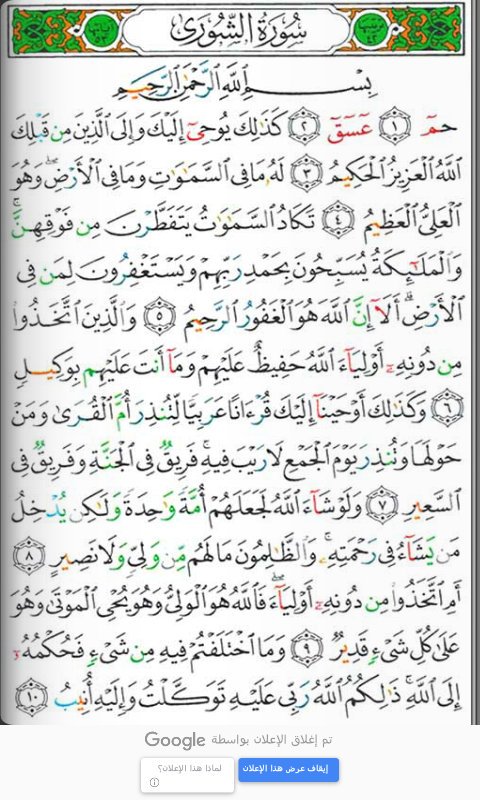 سُورَةُ الشُّورَىٰ
بِسْمِ اللَّهِ الرَّحْمَٰنِ الرَّحِيمِ
حمٓ ١ عٓسٓقٓ ٢ كَذَٰلِكَ يُوحِىٓ إِلَيْكَ وَإِلَى الَّذِينَ مِن قَبْلِكَ
اللَّهُ الْعَزِيزُ الْحَكِيمُ ٣ لَهُ مَا فِى السَّمَٰوَٰتِ وَمَا فِى الْأَرْضِ ۖ وَهُوَ
الْعَلِىُّ الْعَظِيمُ ٤ تَكَادُ السَّمَٰوَٰتُ يَتَفَطَّرْنَ مِن فَوْقِهِنَّ ۚ
وَالْمَلَٰٓئِكَةُ يُسَبِّحُونَ بِحَمْدِ رَبِّهِمْ وَيَسْتَغْفِرُونَ لِمَن فِى
الْأَرْضِ ۗ أَلَآ إِنَّ اللَّهَ هُوَ الْغَفُورُ الرَّحِيمُ ٥ وَالَّذِينَ اتَّخَذُوا۟
مِن دُونِهِۦٓ أَوْلِيَآءَ اللَّهُ حَفِيظٌ عَلَيْهِمْ وَمَآ أَنتَ عَلَيْهِم بِوَكِيلٍ
٦ وَكَذَٰلِكَ أَوْحَيْنَآ إِلَيْكَ قُرْءَانًا عَرَبِيًّا لِّتُنذِرَ أُمَّ الْقُرَىٰ وَمَنْ
حَوْلَهَا وَتُنذِرَ يَوْمَ الْجَمْعِ لَا رَيْبَ فِيهِ ۚ فَرِيقٌ فِى الْجَنَّةِ وَفَرِيقٌ فِى
السَّعِيرِ ٧ وَلَوْ شَآءَ اللَّهُ لَجَعَلَهُمْ أُمَّةً وَٰحِدَةً وَلَٰكِن يُدْخِلُ
مَن يَشَآءُ فِى رَحْمَتِهِۦ ۚ وَالظَّٰلِمُونَ مَا لَهُم مِّن وَلِىٍّ وَلَا نَصِيرٍ ٨
أَمِ اتَّخَذُوا۟ مِن دُونِهِۦٓ أَوْلِيَآءَ ۖ فَاللَّهُ هُوَ الْوَلِىُّ وَهُوَ يُحْىِ الْمَوْتَىٰ وَهُوَ
عَلَىٰ كُلِّ شَىْءٍ قَدِيرٌ ٩ وَمَا اخْتَلَفْتُمْ فِيهِ مِن شَىْءٍ فَحُكْمُهُۥٓ
إِلَى اللَّهِ ۚ ذَٰلِكُمُ اللَّهُ رَبِّى عَلَيْهِ تَوَكَّلْتُ وَإِلَيْهِ أُنِيبُ ١٠
تم إغلاق الإعلان بواسطة Google
إيقاف عرض هذا الإعلان
لماذا هذا الإعلان؟